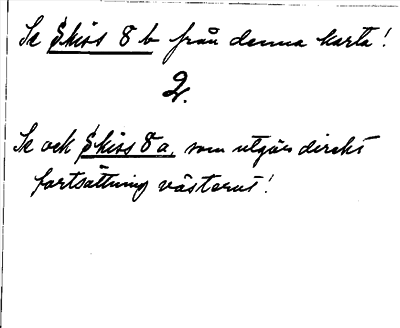 Se Skiss 8 b från denna karta!
2.
Se och Skiss 8 a, som utgör direkt
fortsättning västerut!